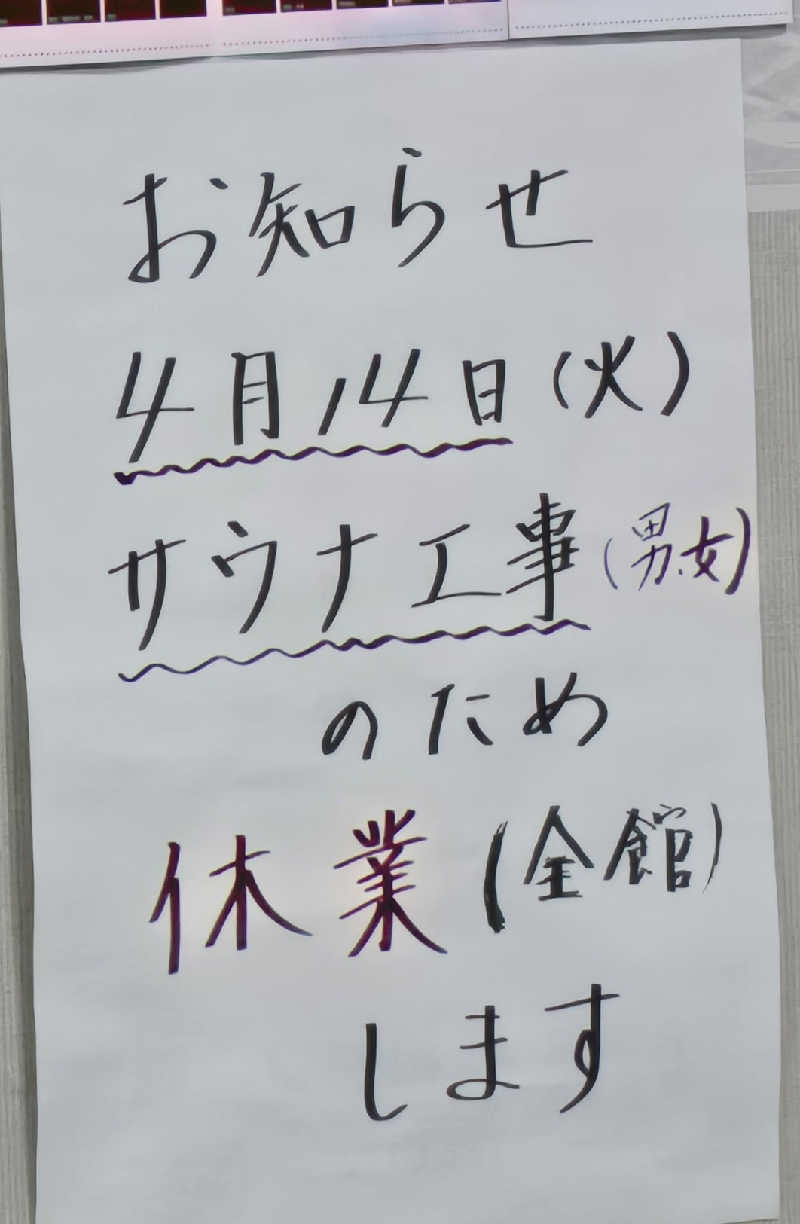 お知らせ
4月14日(火)
サウナ工事(男.女)
のため
休業(全館)
します